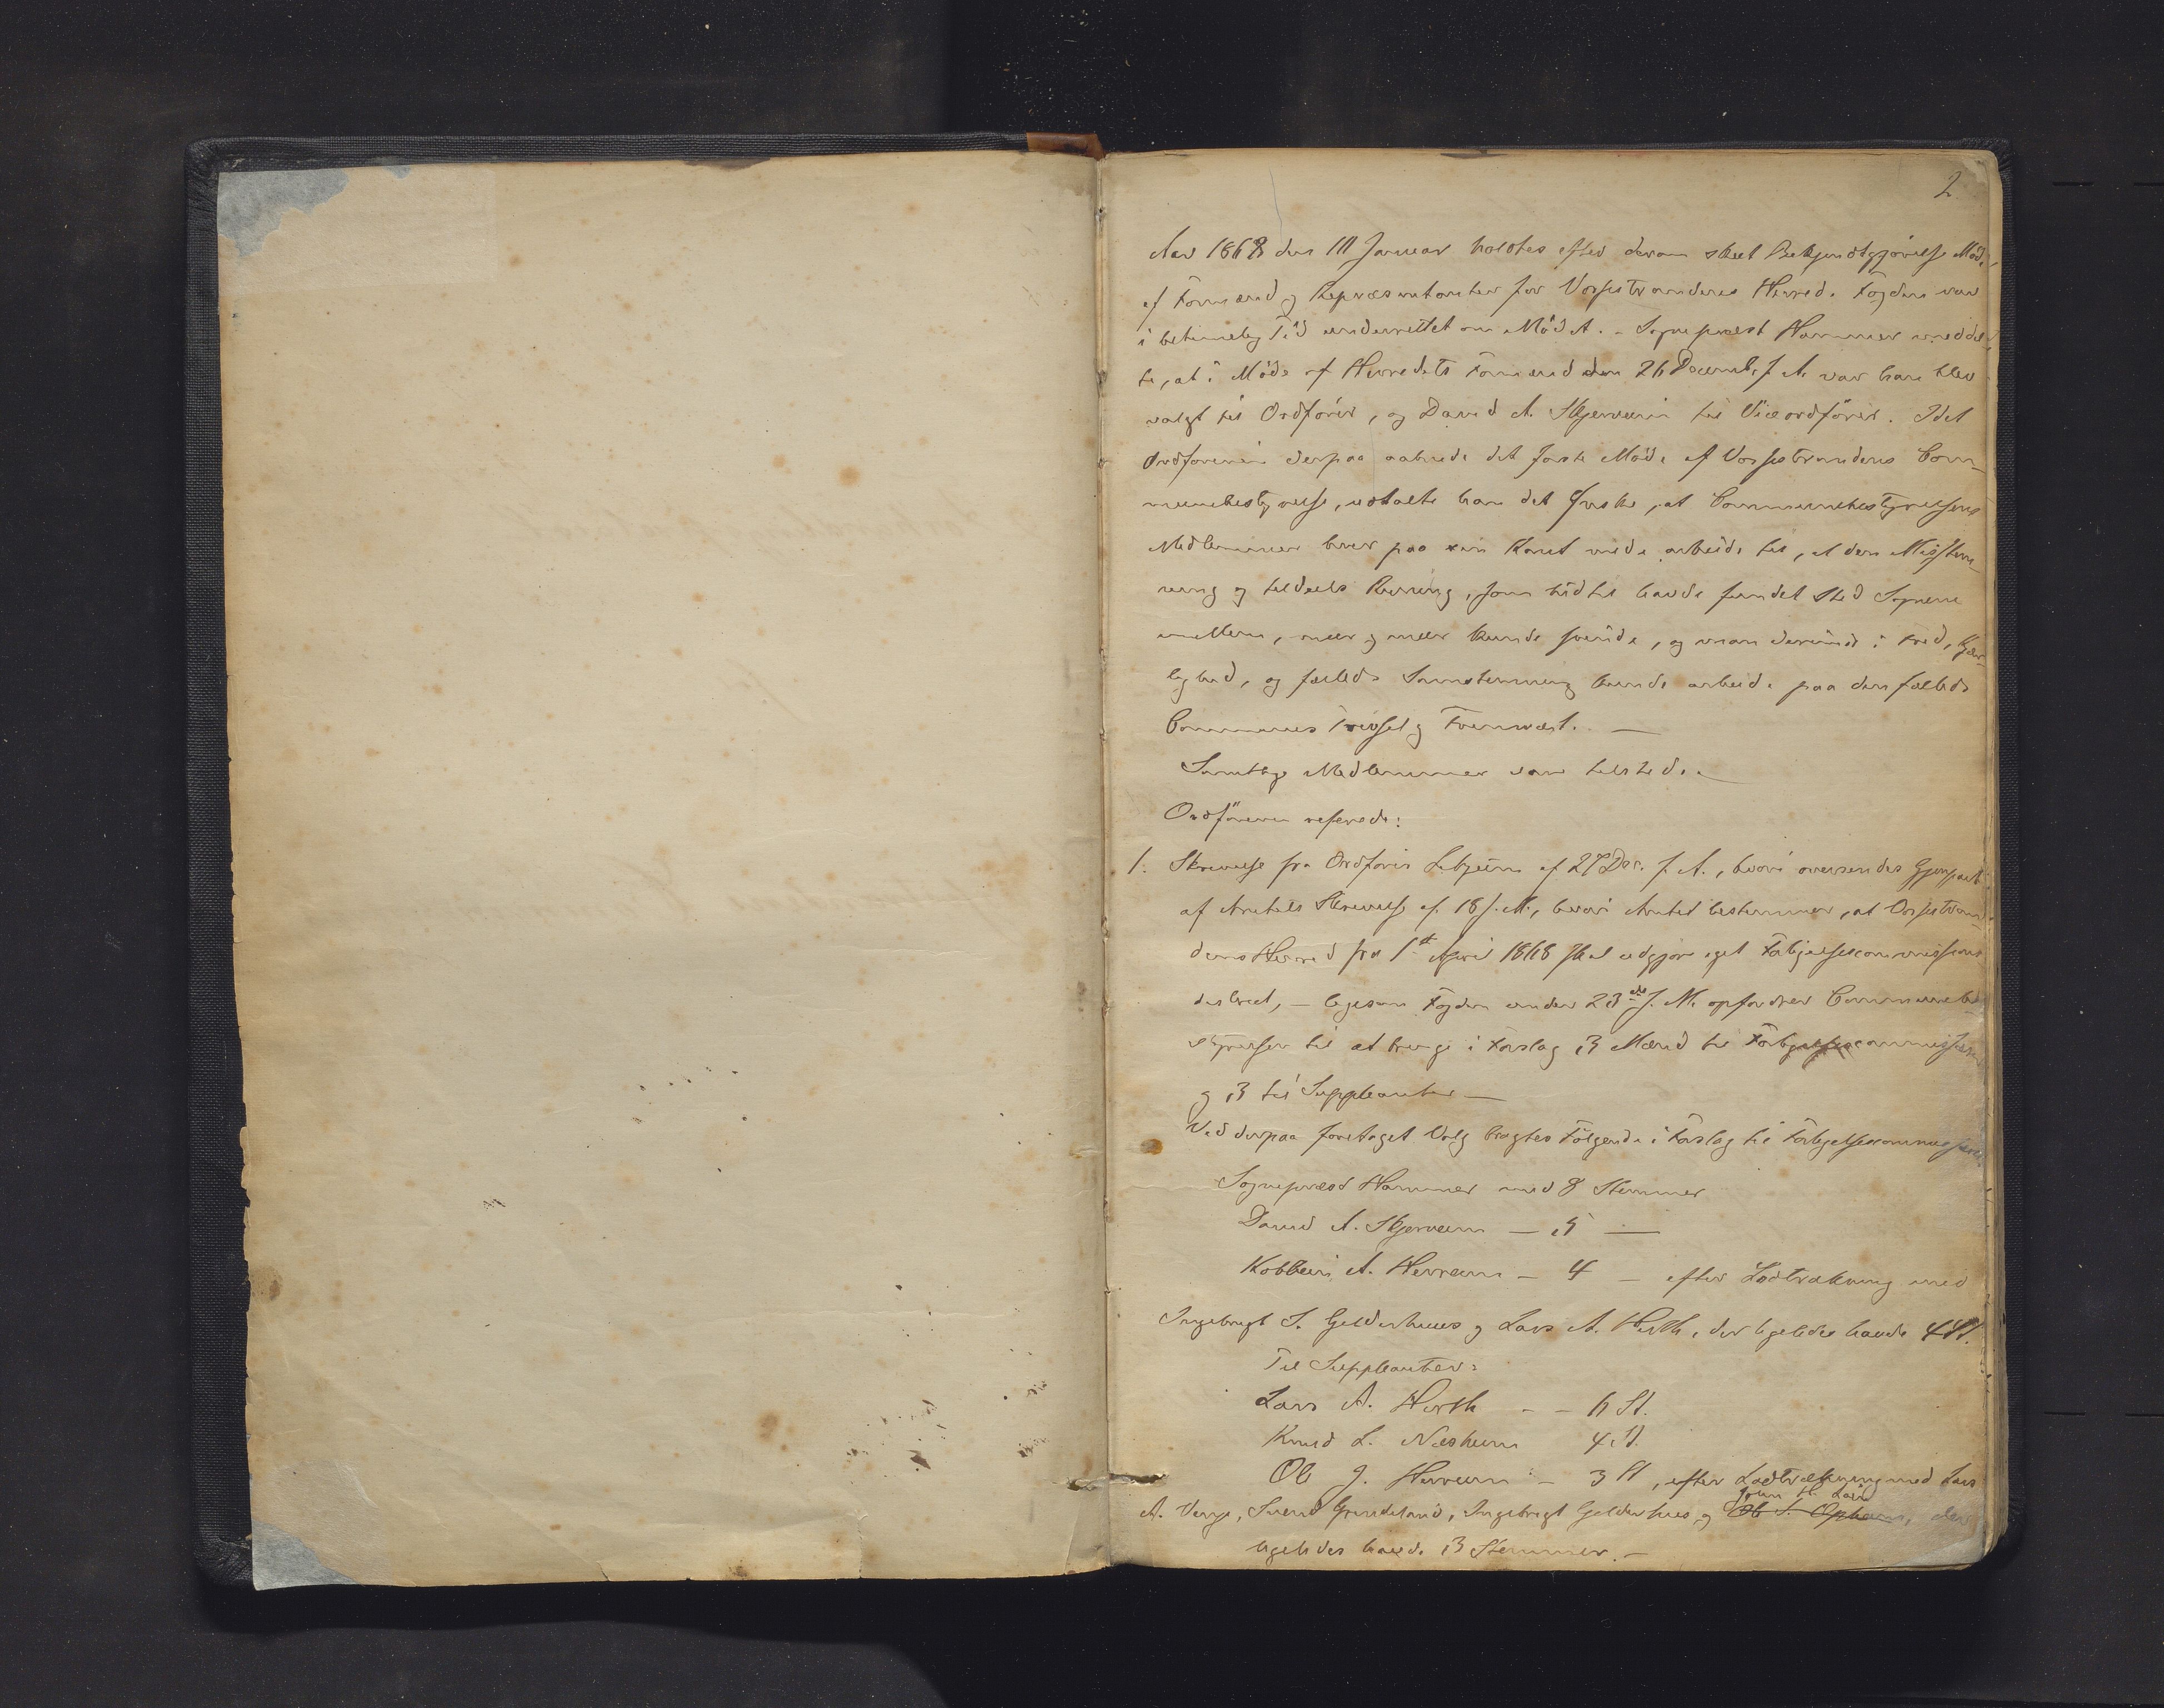 2
Aar 1868 den 10 Januar holdtes efter derom skeet Bekjendtgjörelse Möde
af Formænd og Repræsentanter for Vossestrandens Herred. Fogden var
i betimelig Tid underrettet om Mödet. – Sognepræst Hammer meddel-
te, at i Möde af Herredets Formænd den 26 Decemb. f. A. var han blev
valgt til Ordförer, og David A. Skjerveim til Viceordförer. Idet
Ordföreren derpaa aabnede det förste Möde af Vossestrandens Com-
munebestyrelse, udtalte han det Önske, at Communebestyrelsens
Medlemmer hver paa sin Kant vilde arbeide til, at den Misstem-
ning og tildeels Rivning, som hidtil havde fundet Sted Sognene
imellem, meer og meer kunde svinde, og man derimod i Fred, Kjær-
lighed, og fælleds Samstemning kunde arbeide paa den fælleds
Communes Trivsel og Fremvæxt. —
Samtlige Medlemmer vare tilstede. —
Ordföreren refererede:
1. Skrivelse fra Ordförer Lekjeim af 27 Dec. f. A., hvori oversendes Gjenpart
af Amtets Skrivelse af 18 s. M., hvori Amtet bestemmer, at Vossestran-
dens Herred fra 1st April 1868 skal udgjöre eget Forligelsescommissions
district, – ligesom Fogden under 23de s. M. opfordrer Communebe-
styrelsen til at bringe i Forslag 3 Mænd til Forligelsescommissærer
og 3 til Suppleanter —
Ved derpaa foretaget Valg bragtes Fölgende i Forslag til Forligelsescommissærer
Sognepræst Hammer med 8 Stemmer
David A. Skjerveim — 5 —
Kolbein A. Herreim – 4 – efter Lodtrækning med
Ingebrigt S. Gjelderhuus og Lars A. Hirth, der ligeledes havde 4 St.
Til Suppleanter:
Lars A. Hirth – – 6 St.
Knud L. Næsheim 4 St.
Ole J. Herreim – 3 St, efter Lodtrækning med Lars
A. Vinje, Svend Grindeland, Ingebrigt Gjelderhuus, og Ole S. Opheim, der
ligeledes havde 3 Stemmer. –